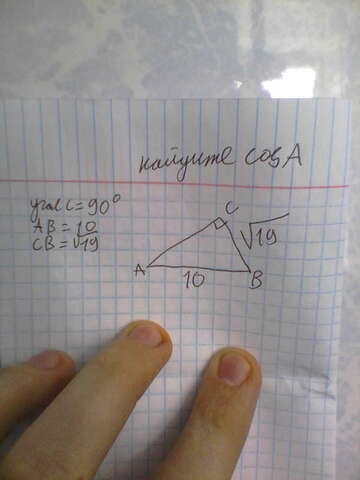 найдите cosA
угол C = 90°
AB = 10
CB = √19
C
√19
A
10
B